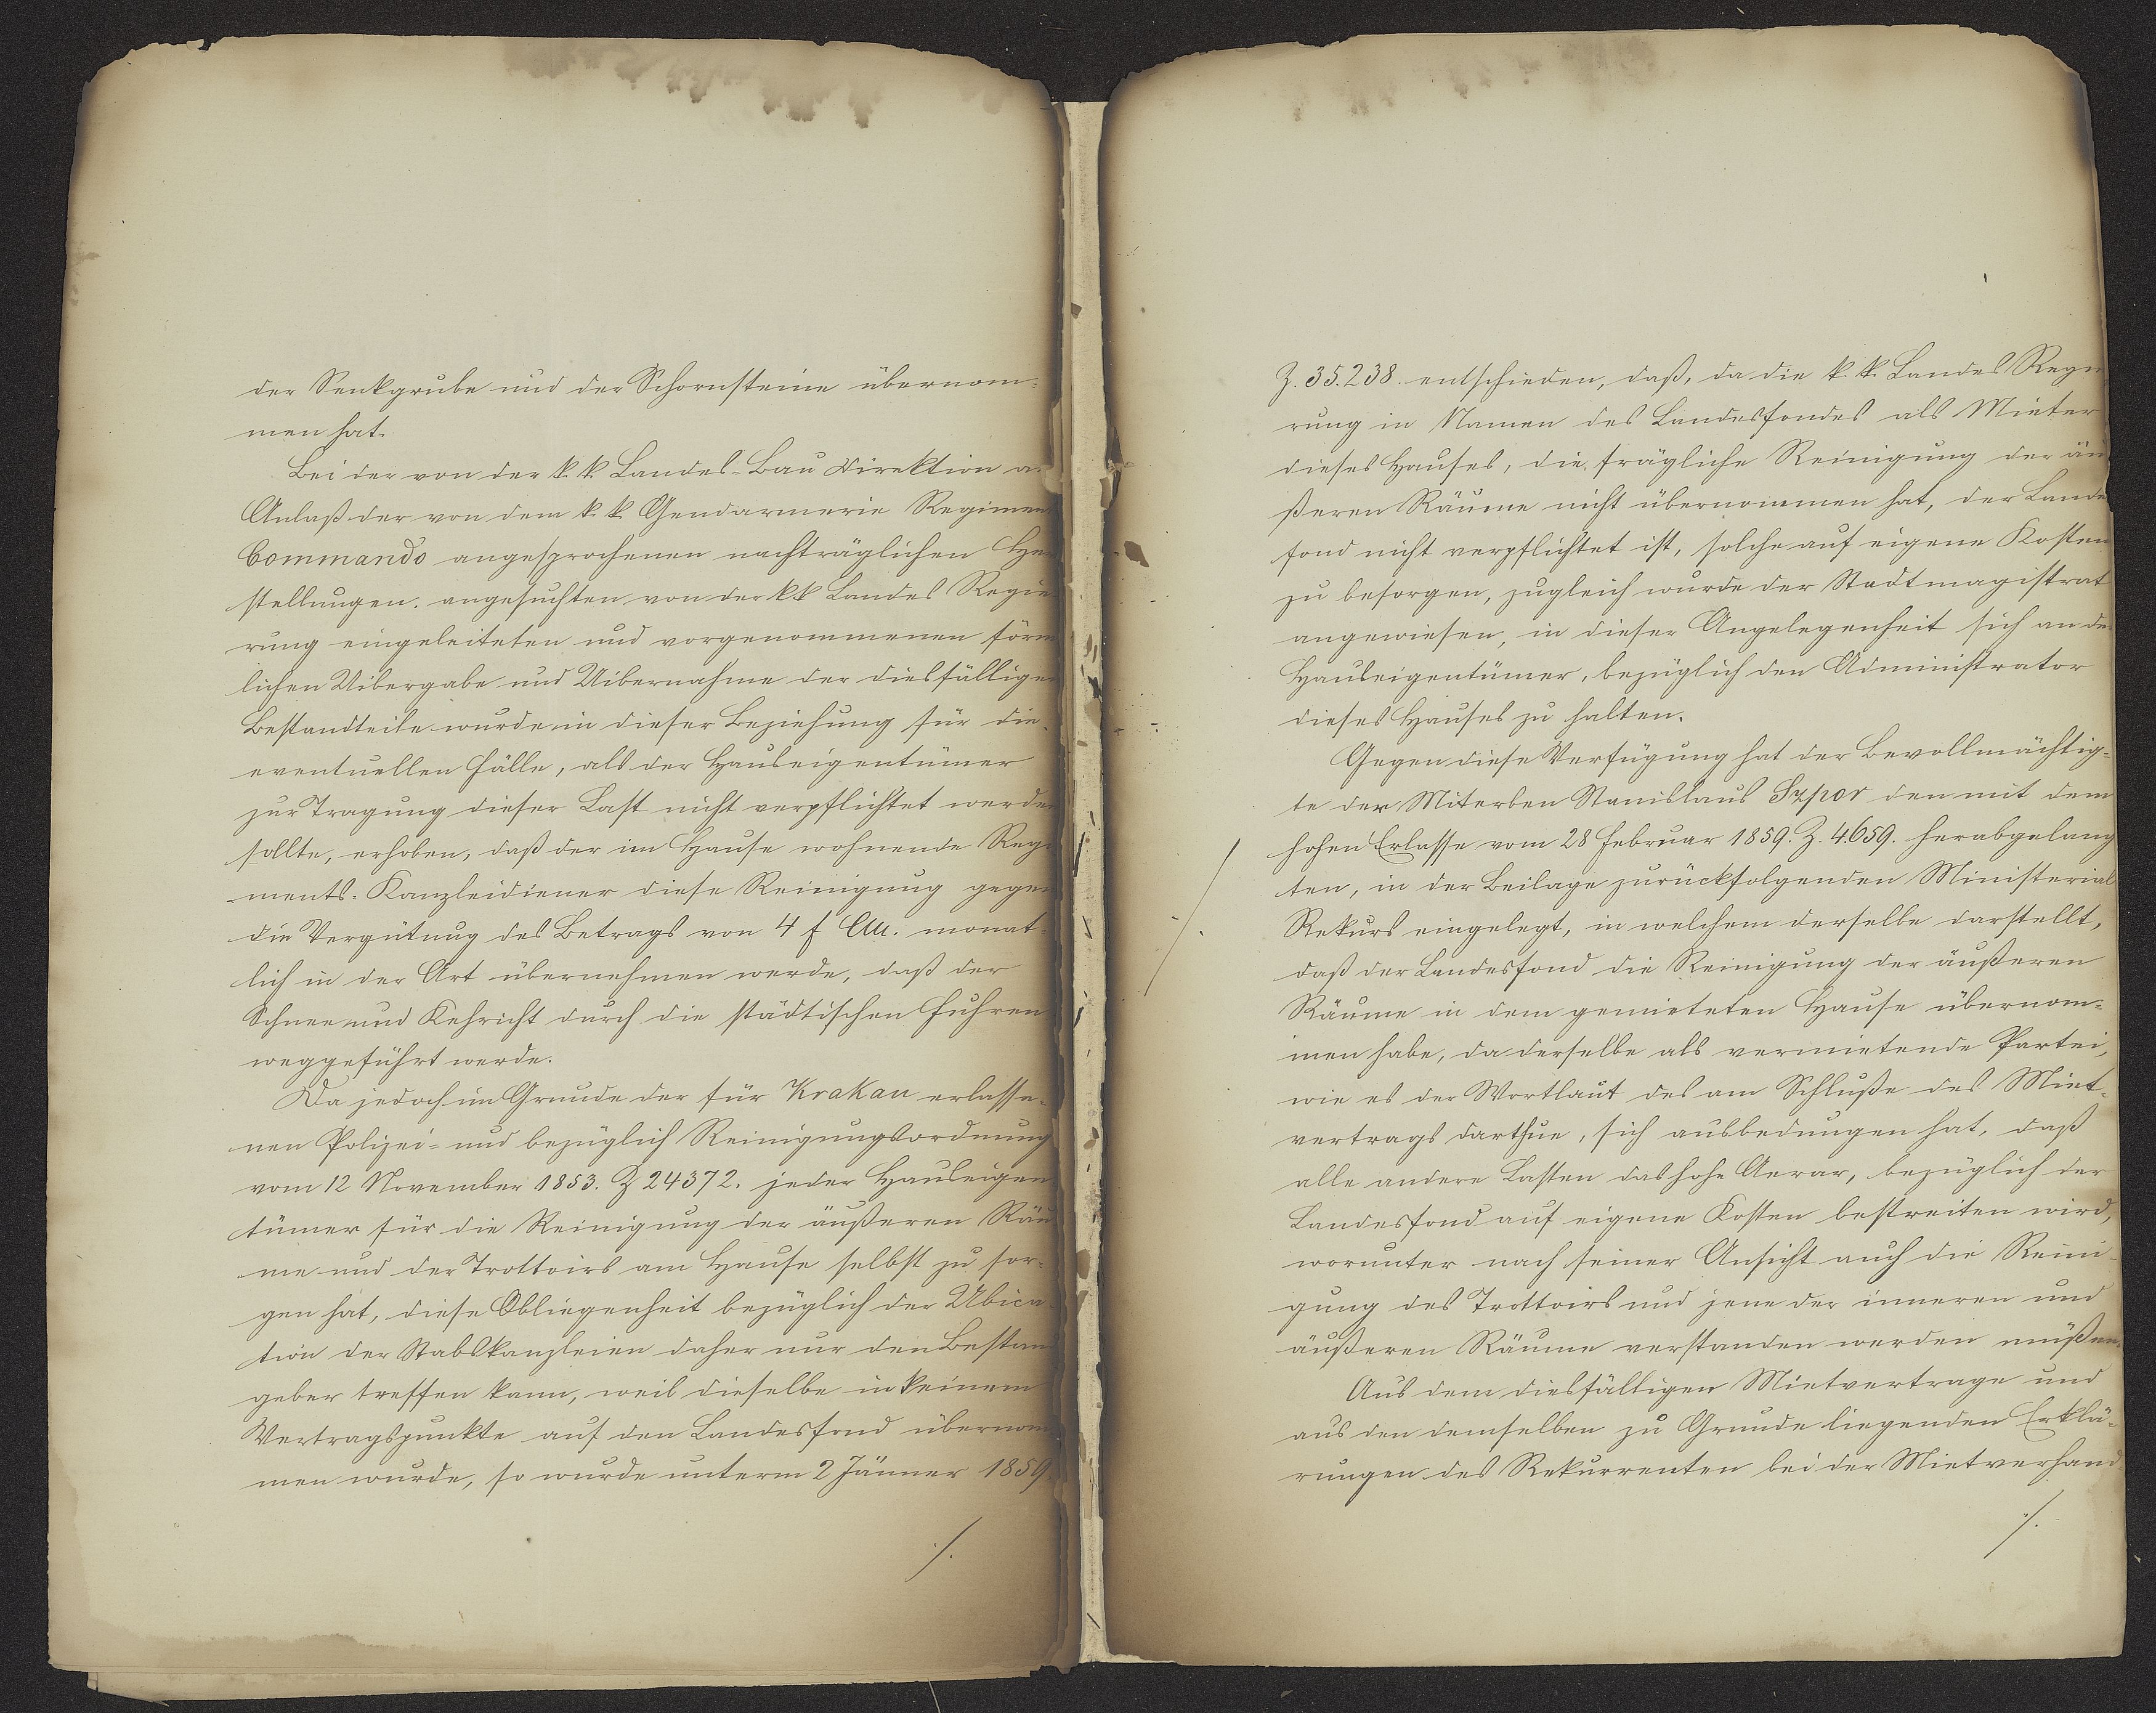 der Senkgrube und der Schornsteine übernom-
men hat.
Bei der von der k. k. Landes-Bau Direktion a
Anlaß der von dem k. k. Gendarmerie Regimen
Commando angesprochenen nachträglichen He
stellungen. angesuchten von der kk Landes Regie
rung eingeleiteten und vorgenommenen förm
lichen Uibergabe und Uibernahme der diesfällige
Bestandteile wurde in dieser Beziehung für die
eventuellen Fälle, als der Hauseigentümer
zur Tragung dieser Last nicht verpflichtet werde
sollte, erhoben, daß der im Hause wohnende Reg
ments-Kanzleidiener diese Reinigung gege
die Vergütung des Betrags von 4 f CM. monat-
lich in der Art übernehmen werde, daß der
Schnee und Kehricht durch die städtischen Fuhren
weggeführt werde.
Da jedoch im Grunde der für Krakau erlasse-
nen Polizei- und bezüglich Reinigungsordnung
vom 12 November 1853. Z 24372. jeder Hauseigen
tümer für die Reinigung der äußeren Räu
me und der Trottoirs am Hause selbst zu sor-
gen hat, diese Obliegenheit bezüglich der Ubica-
tion der Stabskanzleien daher nur den Bestan
geber treffen kann, weil dieselbe in keinem
Vertragspunkte auf den Landesfond übernom
men wurde, so wurde unterm 2 Jänner 1859.
./.
Z. 35.238. entschieden, daß, da die k. k. Landes Regie
rung in Namen des Landesfondes als Mieter
dieses Hauses, die frägliche Reinigung der äu
ßeren Räume nicht übernommen hat, der Lande
fond nicht verpflichtet ist, solche auf eigene Kosten
zu besorgen, zugleich wurde der Stadtmagistrat
angewiesen, in dieser Angelegenheit sich an de
Hauseigentümer, bezüglich den Administrator
dieses Hauses zu halten.
Gegen diese Verfügung hat der Bevollmächtig-
te der Miterben Stanislaus Szpor den mit dem
hohen Erlasse vom 28 Februar 1859. Z. 4.659. herabgelang
ten, in der Beilage zurückfolgenden Ministerial
Rekurs eingelegt, in welchem derselbe darstellt,
daß der Landesfond die Reinigung der äußeren
Räume in dem gemieteten Hause übernom-
men habe, da derselbe als vermietende Partei,
wie es der Wortlaut des am Schluße des Miet-
vertrags darthue, sich ausbedungen hat, daß
alle andere Lasten das hohe Aerar, bezüglich der
Landesfond auf eigene Kosten bestreiten wird,
worunter nach seiner Ansicht auch die Reini-
gung des Trottoirs und jene der inneren und
äußeren Räume verstanden werden müßen.
Aus dem diesfälligen Mietvertrage und
aus den demselben zu Grunde liegenden Erklä-
rungen des Rekurrenten bei der Mietverhand
./.